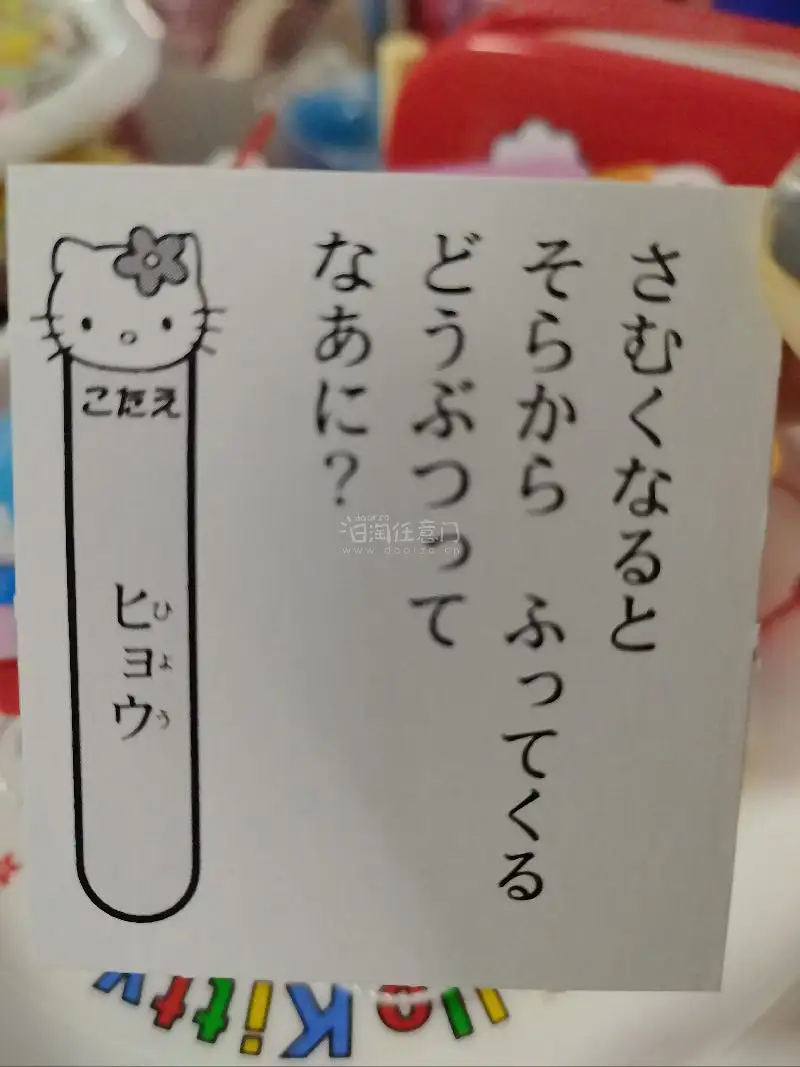 さむくなると
そらから ふってくる
どうぶつって
なあに？
こたえ
ヒョウ
ひょう
doorzo
日淘任意门
www.doorzo.cn
Hello Kitty